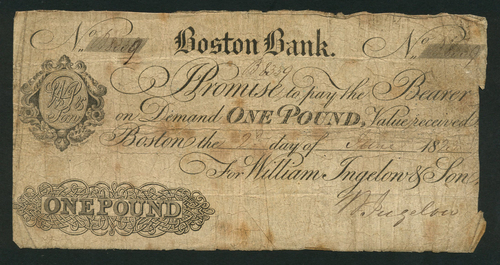 No
Boston Bank.
No
I Promise to pay the Bearer
on Demand ONE POUND, Value received
Boston the day of June 182
For William Ingelow & Son,
W Ingelow
ONE POUND